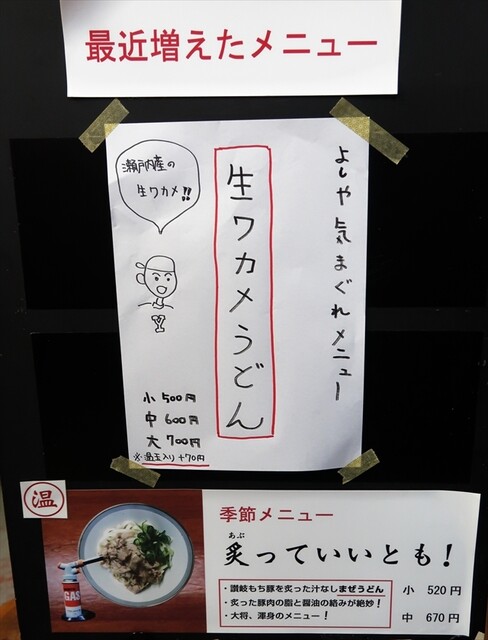 最近増えたメニュー
よしや気まぐれメニュー
生ワカメうどん
瀬戸内産の
生ワカメ!!
小 500円
中 600円
大 700円
※温玉入り +70円
温
季節メニュー
あぶ
炙っていいとも!
・讃岐もち豚を炙った汁なしまぜうどん
・炙った豚肉の脂と醤油の絡みが絶妙!
・大将、渾身のメニュー!
小 520円
中 670円
GAS